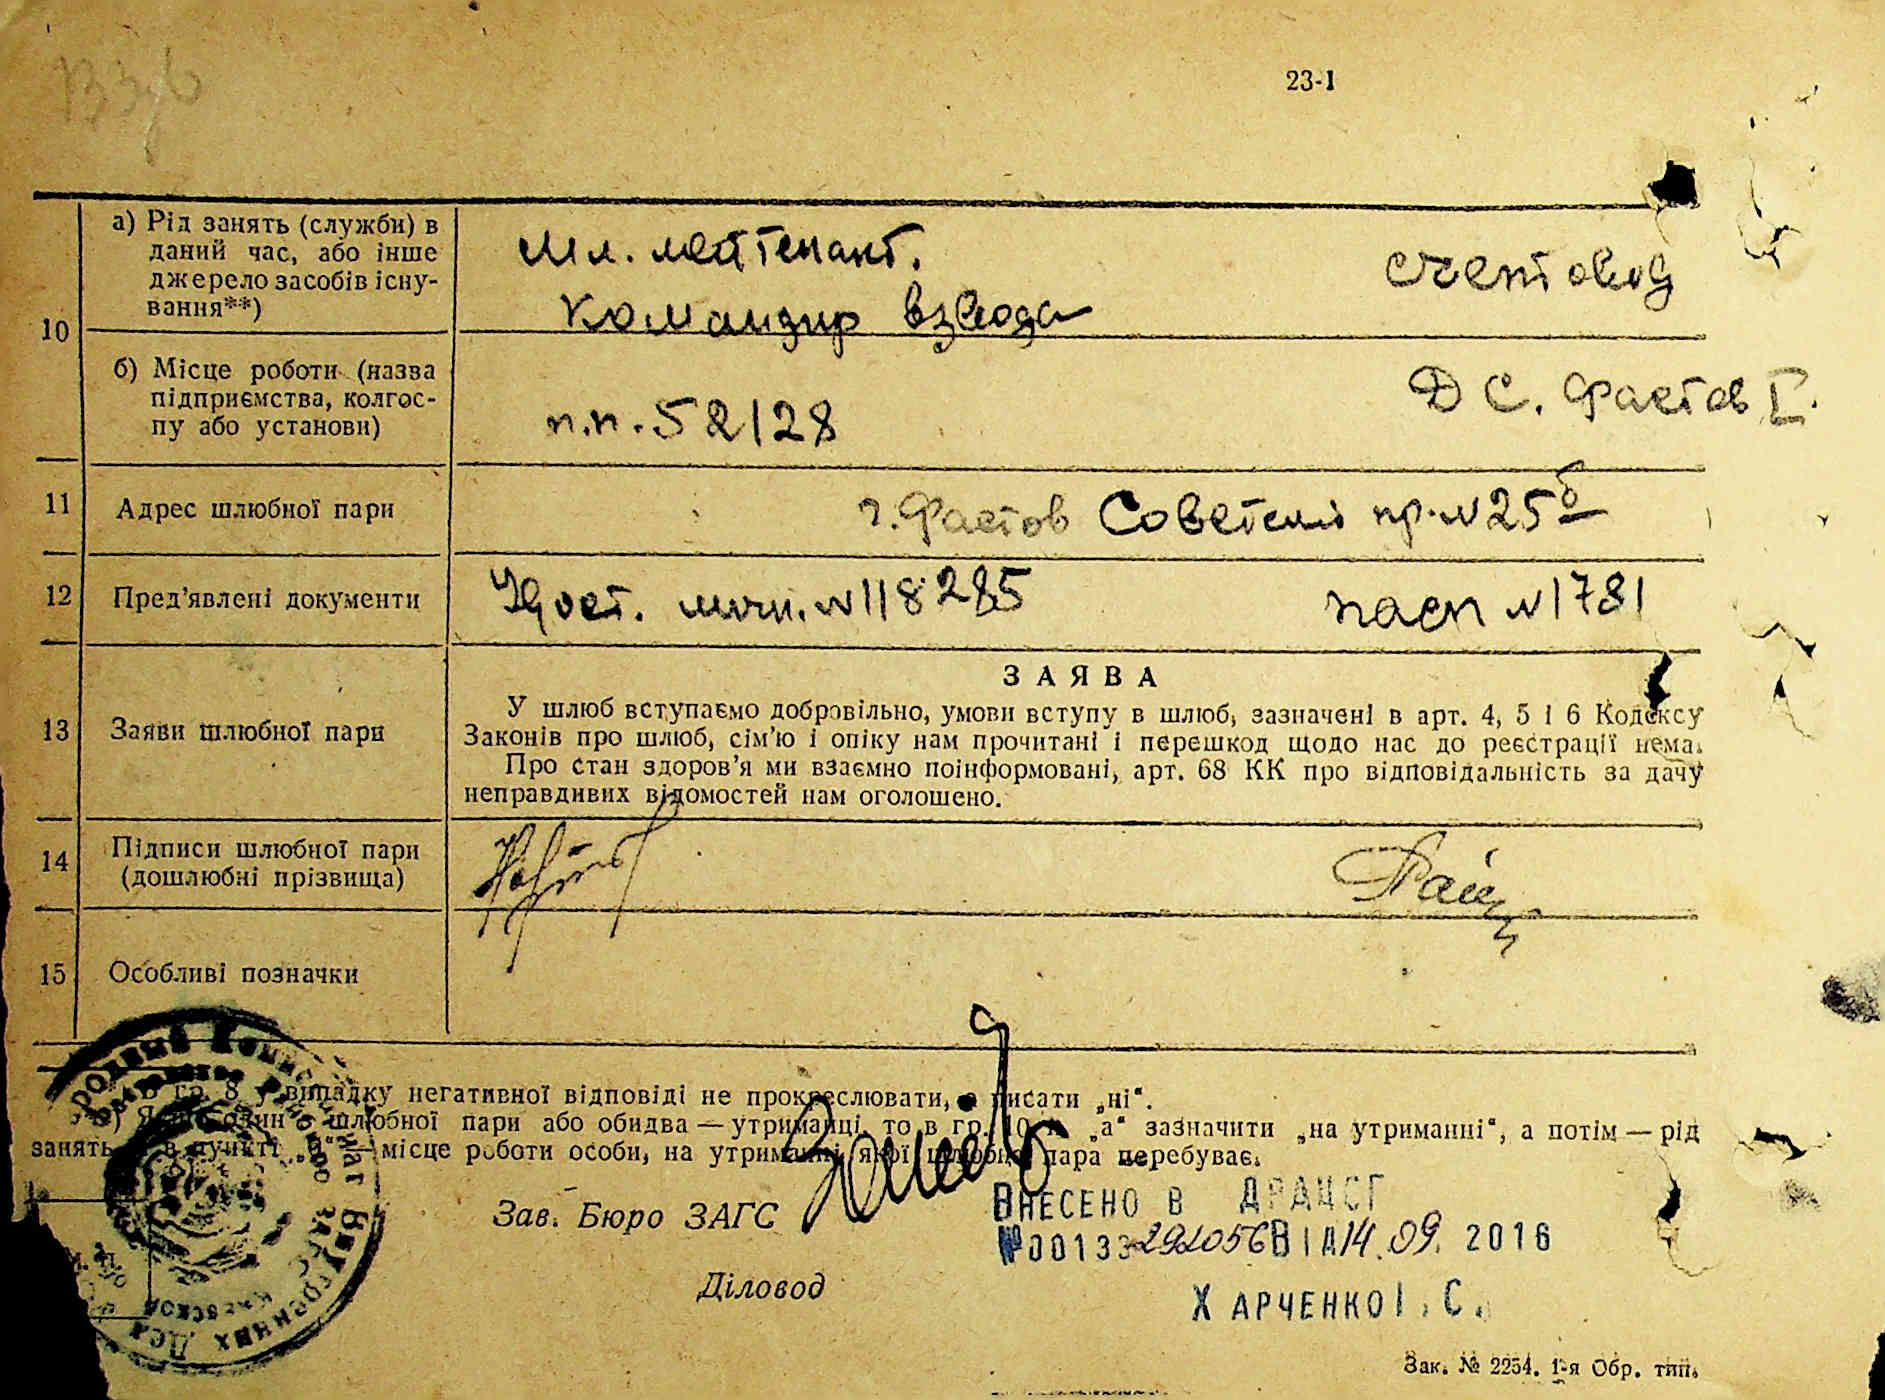 23-1
10
а) Рід занять (служби) в
даний час, або інше
джерело засобів існу-
вання**)
Мл. лейтенант.
командир взвода
счетовод
б) Місце роботи (назва
підприємства, колгос-
пу або установи)
п.п. 52128
Д С. Фастов I.
11
Адрес шлюбної пари
г. Фастов Советский пр. № 25б
12
Пред’явлені документи
Удост. личн. № 118285
пасп № 1781
13
Заяви шлюбної пари
ЗАЯВА
У шлюб вступаємо добровільно, умови вступу в шлюб, зазначені в арт. 4, 5 і 6 Кодексу
Законів про шлюб, сім’ю і опіку нам прочитані і перешкод щодо нас до реєстрації нема.
Про стан здоров’я ми взаємно поінформовані, арт. 68 КК про відповідальність за дачу
неправдивих відомостей нам оголошено.
14
Підписи шлюбної пари
(дошлюбні прізвища)
15
Особливі позначки
В гр. 8 у випадку негативної відповіді не прокреслювати, а писати „ні“.
шлюбної пари або обидва — утриманці, то в гр. 10 п. „а“ зазначити „на утриманні“, а потім — рід
занять, в пункті „б“ — місце роботи особи, на утриманні якої шлюбна пара перебуває.
Зав. Бюро ЗАГС
Діловод
ВНЕСЕНО В ДРАЦСГ
№00133292056ВІД 14.09. 2016
ХАРЧЕНКО І. С.
Зак. № 2254. 1-я Обр. тип.